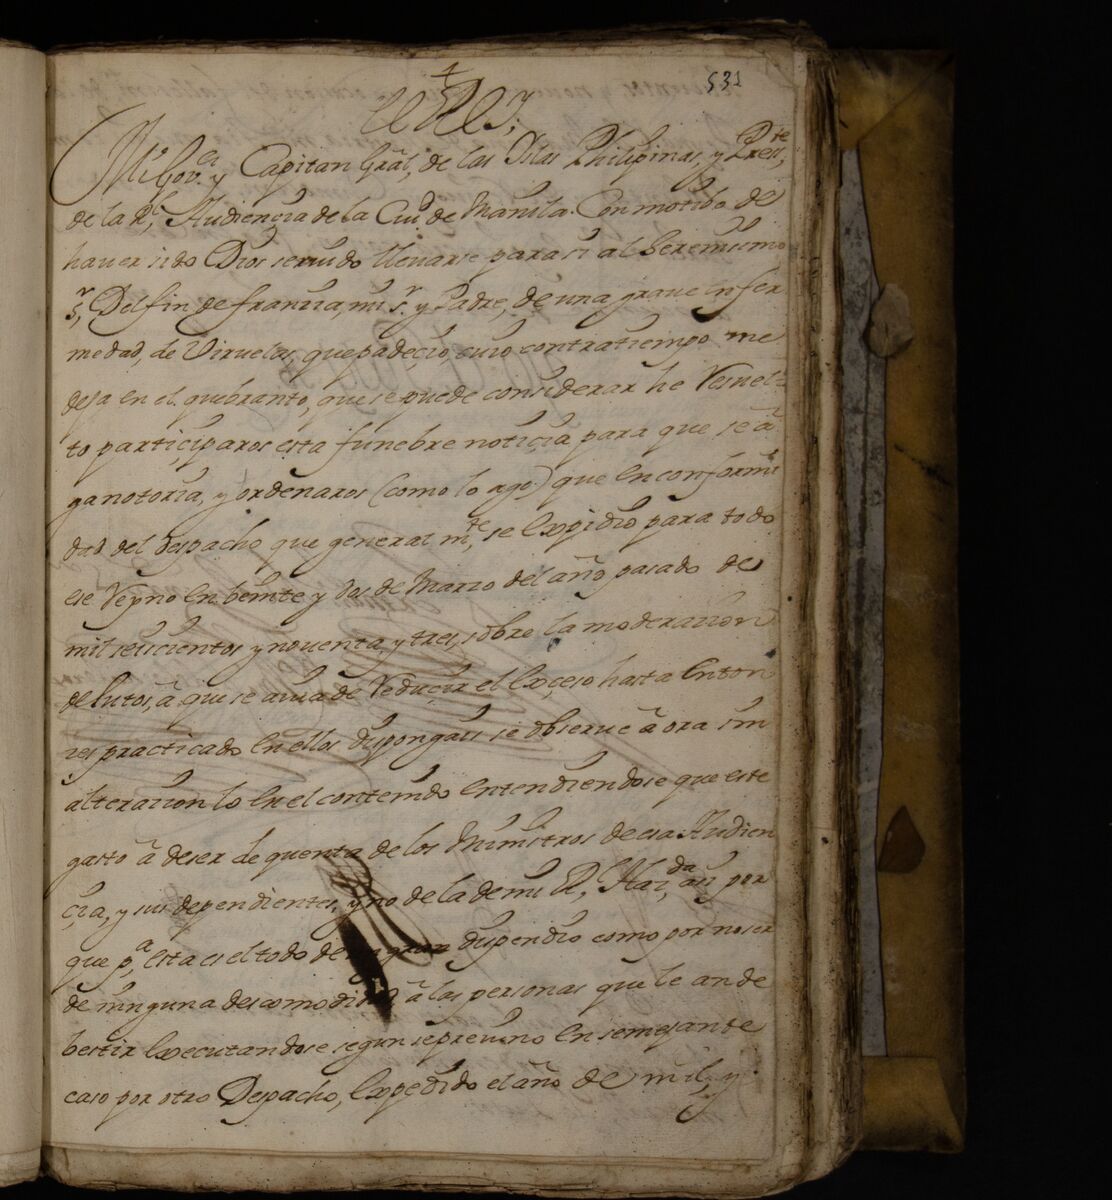 531
El Rey
Mi Gov.or y Capitan Gral, de las Islas Philipinas, y Press.te
de la R.l Audiençia de la Ciu.d de Manila. Con motibo de
haver sido Dios seruido lleuarse para si al Serenisimo
S.r Delfin, de françia, mi s.r y Padre, de una graue enfer
medad, de Viruelas, que padeçio, cuio contratiempo me
deja en el quebranto, que se puede considerar he Resuel=
to partiçiparos esta funebre notiçia para que se à
ga notoria, y ordenaros (como lo ago) que en conformi
dad del Despacho que general m.te se expidio para todo
ese Reyno en beinte y dos de Marzo del año pasado de
mil seisçientos y nouenta, y tres, sobre la moderazion
de lutos, à que se auia de Reduçir el exçeso hasta enton
zes practicado en ellos dispongais se obserue àora sin
alterazion lo en el contenido entendiendose que este
gasto à de ser de quenta de los Ministros de esa Audien
çia, y sus dependientes, y no de la de mi R.l Haz.da asi por
que p.a esta es el todo de dispendio como por no ser
de ninguna descomodidad à las personas que le an de
bestir executandose segun se preuino en semejante
caso por otro Despacho, expedido el año de mil, y